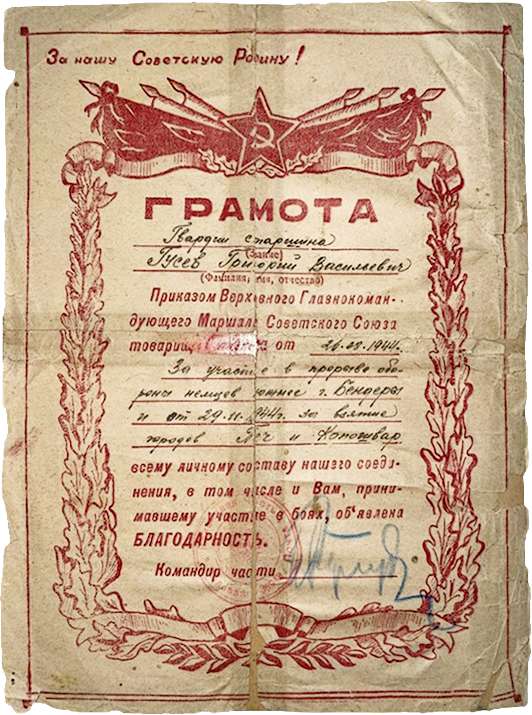 За нашу Советскую Родину!
ГРАМОТА
Гвардии старшина
(Звание)
Гусев Григорий Васильевич
(Фамилия, имя, отчество)
Приказом Верховного Главнокоман-
дующего Маршала Советского Союза
товарища от 26.08.1944г.
За участие в прорыве обо-
роны немцев южнее г. Бендеры
и от 29.11.1944г. за взятие
городов Печ и Капошвар
всему личному составу нашего соеди-
нения, в том числе и Вам, прини-
мавшему участие в боях, об'явлена
БЛАГОДАРНОСТЬ.
Командир части